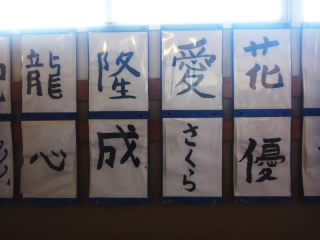 龍
隆
愛
花
心
成
さくら
優